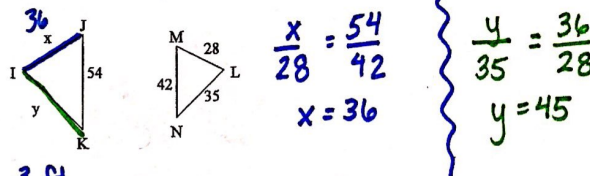 36
x
J
I
54
y
K
M
28
42
L
35
N
x/28 = 54/42
x = 36
y/35 = 36/28
y = 45